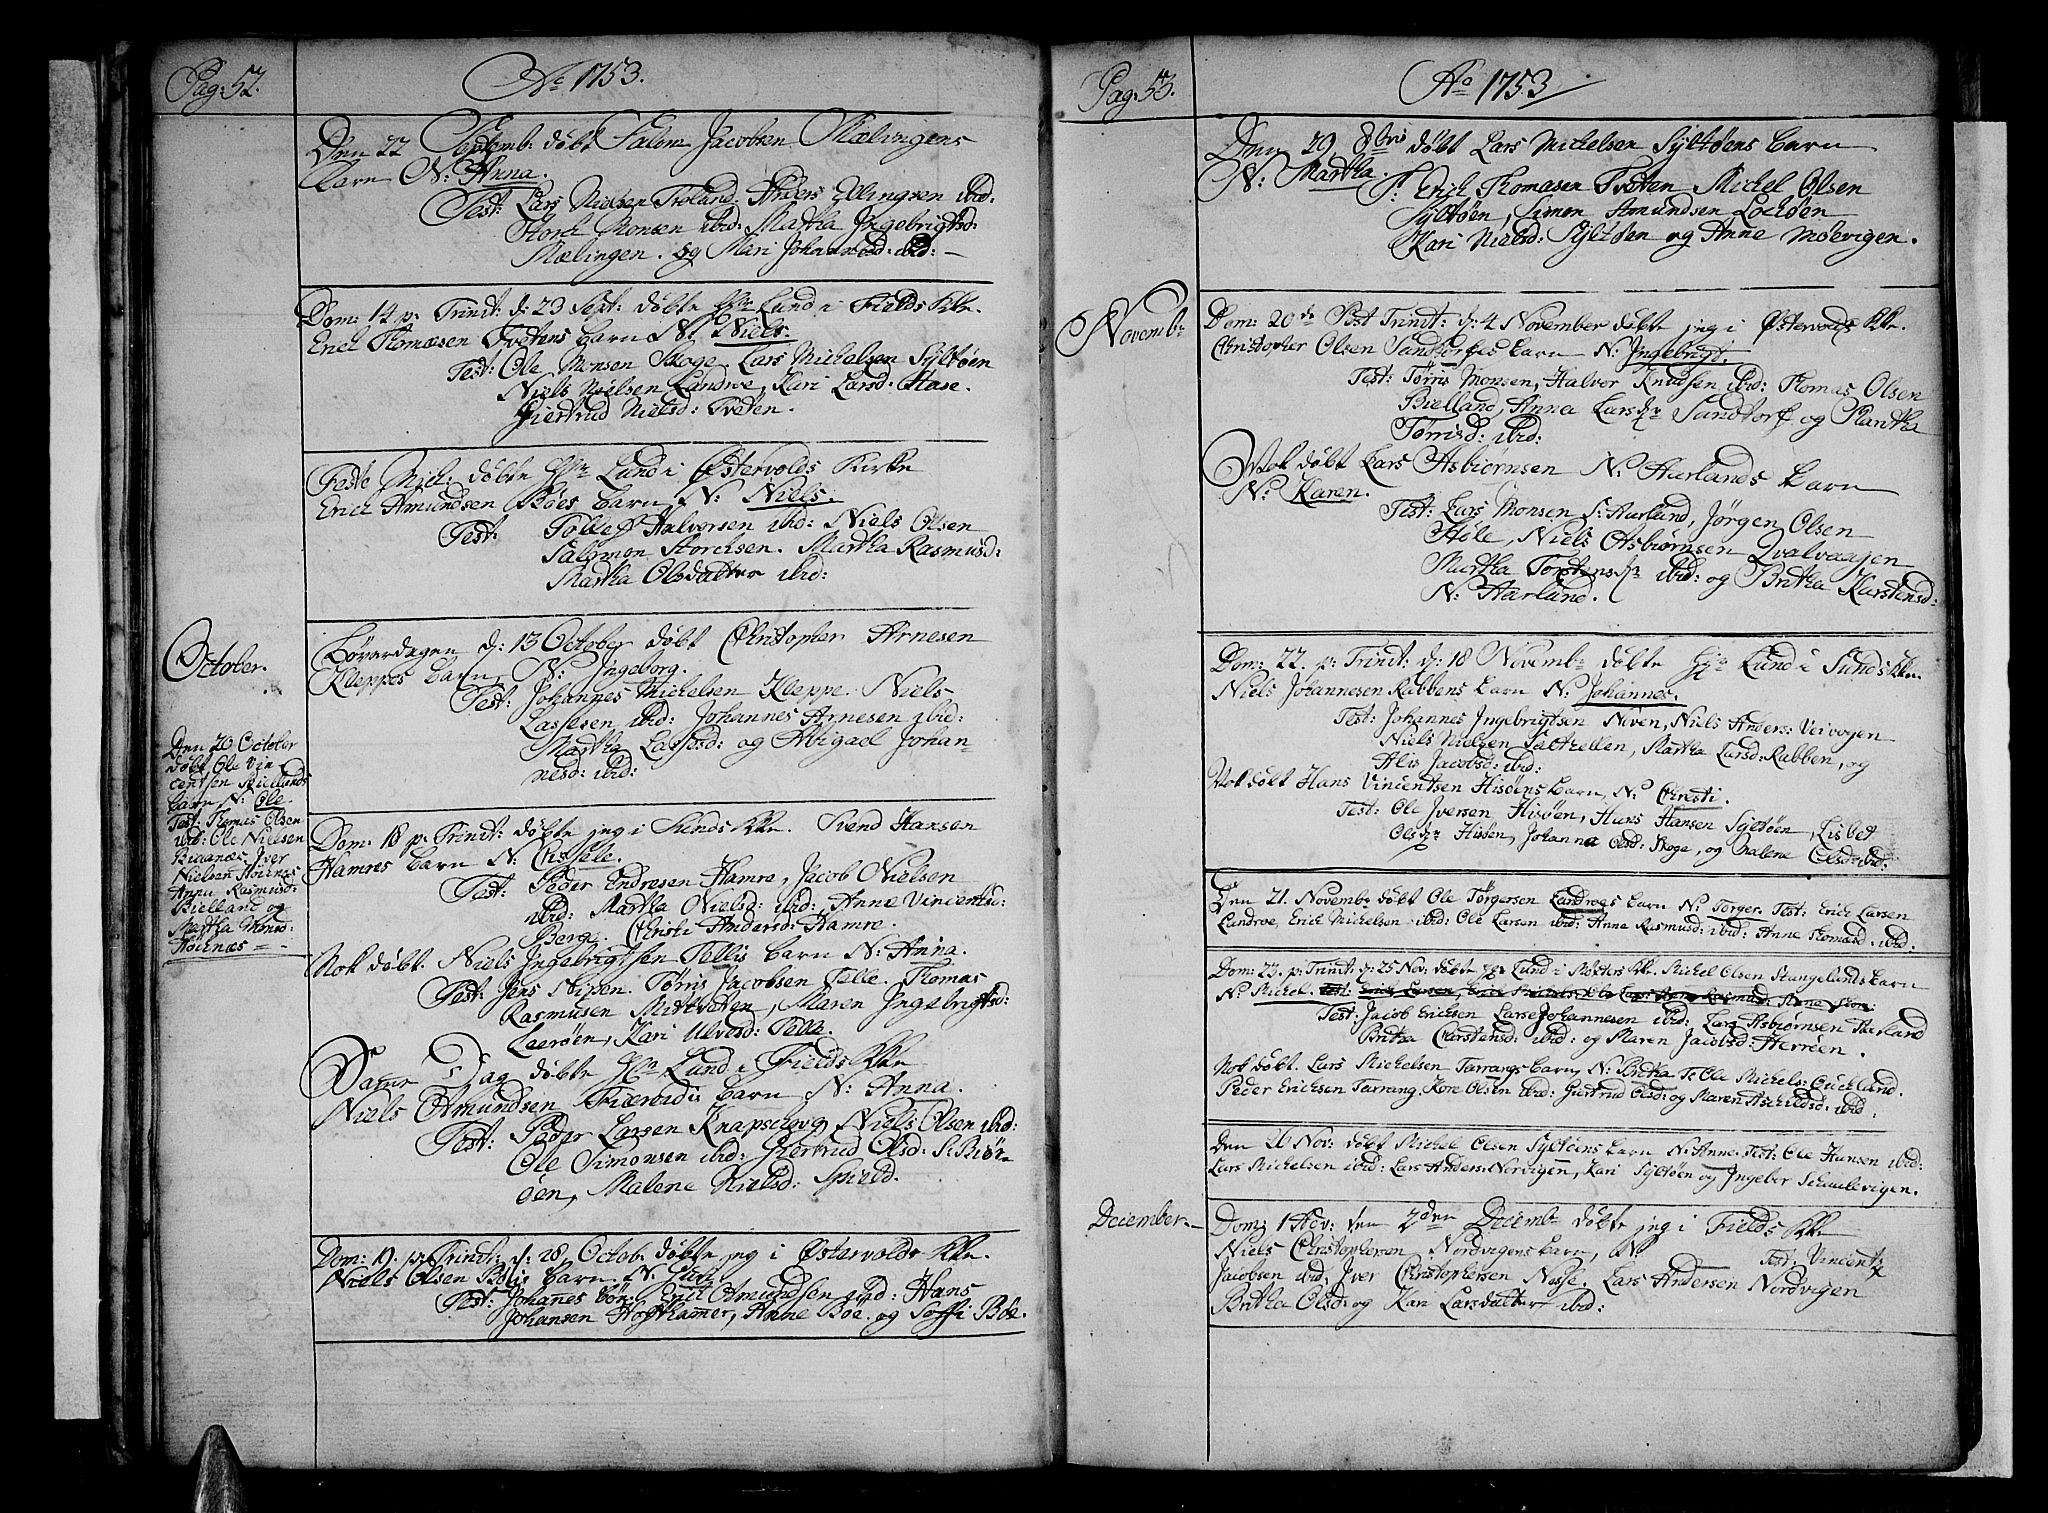 Pag: 52.
Ao 1753.
Den 22 Septemb: døbt Salom Jacobsen Mælingens
barn N: Anna.
Test: Lars Nielsen Troland. Anders Ellingsen ibid:
Storch Monsen ibid: Martha Ingebrigtsd:
Mælingen. og Mari Johannesd: ibid:
Dom: 14 p. Trinit: d: 23 Sept: døbte Hr Lund i Fields Kke.
Erich Thomæsen Tvetens barn N: Niels.
Test: Ole Monsen Skoge. Lars Michelsen Syltøen
Niels Nielsen Landroe, Kari Larsd: Hase.
Giertrud Nielsd: Tveten.
Festo Mich: døbte Hr Lund i Østervolds Kirke
Erich Amundsen Bøes barn N: Niels.
Test: Tollef Halversen ibid: Niels Olsen
Salomon Storchsen. Martha Rasmusd:
Martha Olsdatter ibid:
October.
Løverdagen d: 13 October døbt Christopher Arnesen
Kleppes barn N: Ingeborg.
Test: Johannes Michelsen Kleppe. Niels
Lassesen ibid: Johannes Arnesen ibid:
Martha Lassesd: og Abigael Johan-
nesd: ibid:
Den 20 October
døbt Ole Vin-
centsen Biellands
barn N: Ole.
Test: Thomas Olsen
ibid: Ole Nilesen
Biranæs. Iver
Nielsen Høinæs
Anna Rasmusd:
Bielland og
Martha Monsd:
Høinæs
Dom: 18 p. Trinit: døbte jeg i Sunds Kke. Svend Hansen
Hamres barn N: Cissele.
Test: Peder Endresen Hamre, Jacob Nielsen
ibid: Martha Nielsd: ibid: Anne Vincentsd:
Berge. Christi Andersd: Hamre.
Nok døbt. Niels Ingebrigtsen Tellis barn N: Anna.
Test: Jens Stipen. Tørris Jacobsen Telle. Thomas
Rasmusen Mittveten, Maren Ingebrigtsd:
Leerøen, Kari Ulvesd: Telle.
Samme Dag døbte Hr Lund i Fields Kke
Niels Amundsen Fiærbidis barn N: Anna.
Test: Peder Larsen Knapschoug, Niels Olsen ibid:
Ole Simonsen ibid: Giertrud Olsd: S: Biør-
øen, Malene Nielsd: Spield.
Dom: 19. p. Trinit: d: 28 Octob. døbte jeg i Østervolds Kke.
Niels Olsen Bøis barn N:
Test: Johannes Bør. Erich Amundsen ibid: Hans
Johansen Hopthamer, Anne Bøe. og Soffi Bøe.
Pag: 53.
Ao 1753
Den 29 8bris døbt Lars Michelsen Syltøens barn
N: Martha.
T: Erich Thomasen Tveten Michel Olsen
Syltøen, Simon Amundsen Lochøen
Kari Nielsd: Syltøen og Anne Møevigen.
Novembr
Dom: 20de Post Trinit: d: 4 November døbte jeg i Østervolds Kke.
Christopher Olsen Sandtorfes barn N: Ingebrigt.
Test: Tørris Monsen, Halver Knudsen ibid: Thomas Olsen
Bielland, Anna Larsdr Sandtorf og Martha
Tørrisd: ibid:
Nok døbt Lars Asbiørnsen N: Aarlands barn
N: Karen.
Test: Lars Monsen S: Aarland, Jørgen Olsen
Støle, Niels Asbiørnsen Qvalvaagen
Martha Torstensdr ibid: og Britha Karstensd:
N: Aarland.
Dom: 22. p: Trinit: d: 18 Novembr døbte Hr Lund i Sunds Kke.
Niels Johannesen Rabbens barn N: Johannes.
Test: Johannes Ingebrigtsen Noven, Niels Anders: Veivogen
Niels Nielsen Sæthellen, Martha Larsd: Rabben, og
Alis Jacobsd: ibid:
Nok døbt Hans Vincentsen Hisøens barn, N: Christi.
Test: Ole Iversen Hisøen, Hans Hansen Syltøen, Lisbet
Olsdr Hisøen, Johanna Olsd: Skoge, og Malene Olsd: ibid:
Den 21. Novembr døbt Ole Tørgersen Landroes barn N: Torger. Test: Erich Larsen
Landroe, Erich Michelsen ibid: Ole Larsen ibid: Anna Rasmusd: ibid: Anne Thomasd: ibid:
Dom: 23. p: Trinit: d: 25 Nov: døbte Hr Lund i Møkters Kke. Michel Olsen Stangelands barn
N: Michel. Test: Erich Larsen, Erich Michels: Ole Lars: Anna Rasmusd: Anne Thom:
Test: Jacob Erichsen Larse Johannesen ibid: Lars Asbiørnsen Aarland
Britha Carstensd: ibid: og Maren Jacobsd: Herrøen.
Nok døbt. Lars Michelsen Tarrangs barn, N: Britha T: Ole Michels: Quchland.
Peder Erichsen Tarrang. Kone Olsen ibid: Giertrud Olsd: og Maren Aschildsd: ibid:
Den 26 Nov: døbt Michel Olsen Syltøens barn N: Anne. Test: Ole Hansen ibid:
Lars Michelsen ibid: Lars Anders: Norvigen, Kari Syltøen og Ingeber Schaalevigen.
December.
Dom: 1 Adv: den 2den Decembr døbte jeg i Fields Kke
Niels Christophersen Nordvigens barn, N: Test: Vincentz
Jacobsen ibid: Iver Christophersen Nesse. Lars Andersen Nordvigen
Britha Olsd: og Kari Larsdatter ibid: